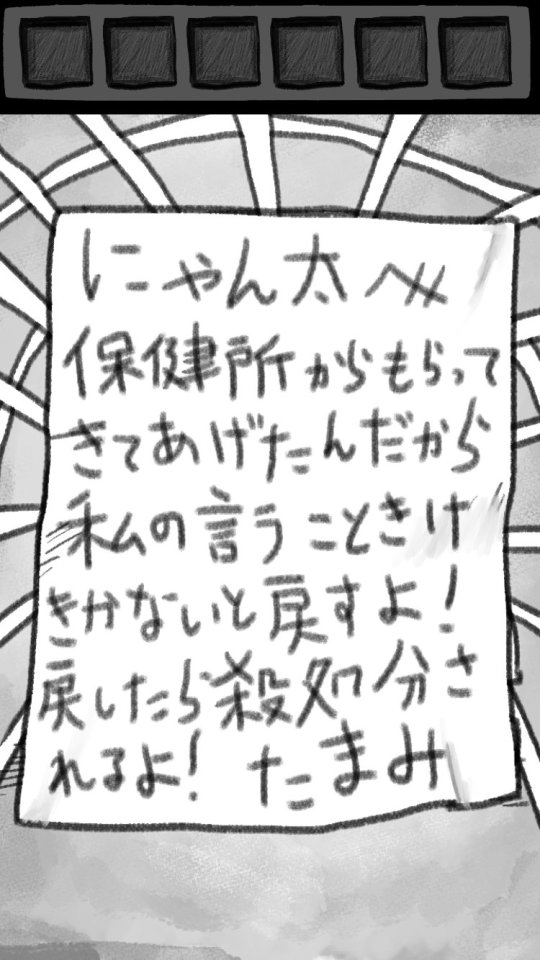 にゃん太へ〃
保健所からもらって
きてあげたんだから
私の言うこときけ
きかないと戻すよ!
戻したら殺処分さ
れるよ! たまみ